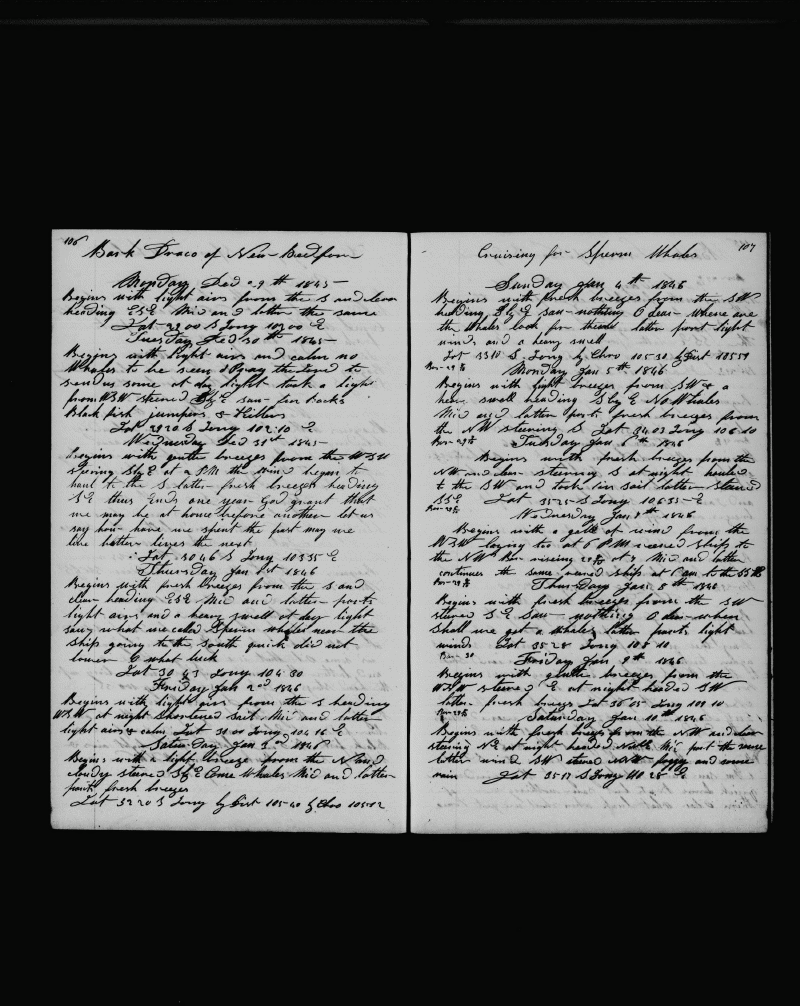 106
Bark Draco of New Bedford
Monday Dec 29th 1845
Begins with light airs from the S and clear
heading ESE Mid and latter the same
Lat 29 00 S Long 102 00 E
Tuesday Dec 30th 1845
Begins with light airs and calm no
Whales to be seen I Pray the Lord to
send us some at day light took a light
from WSW steered SbyE saw fin backs
Black fish jumpers & Killers
Lat 29 20 S Long 102 10 E
Wednesday Dec 31st 1845
Begins with gentle breezes from the WSW
steering SbyE at 2 PM the wind begun to
haul to the S latter fresh breezes heading
SE thus Ends one year God grant that
we may be at home before another let us
say how have we spent the past may we
live better lives the next
Lat 30 46 S Long 103 35 E
Thursday Jan 1st 1846
Begins with fresh breezes from the S and
clear heading ESE Mid and latter parts
light airs and a heavy swell at day light
saw what we called Sperm whales near the
ship going to the South quick did not
lower O what luck
Lat 30 43 Long 104 30
Friday Jan 2nd 1846
Begins with light airs from the S heading
WSW at night shortened sail Mid and latter
light airs & calm Lat 31 00 Long 104 16 E
Saturday Jan 3rd 1846
Begins with a light breeze from the N and
cloudy steered SbyE Come Whales Mid and latter
parts fresh breezes
Lat 32 20 S Long by First 105 40 by Chro 105 12
107
Cruising for Sperm Whales
Sunday Jan 4th 1846
Begins with fresh breezes from the SW
heading SbyE saw nothing O dear where are
the Whales look for them latter part light
winds and a heavy swell
Lat 33 10 S Long by Chro 105 30 by First 105 59
Monday Jan 5th 1846
Begins with light breezes from SW & a
heavy swell heading SbyE No Whales
Mid and latter part fresh breezes from
the NW steering S Lat 34 03 Long 106 10
Tuesday Jan 6th 1846
Begins with fresh breezes from the
NW and clear steering S at night hauled
to the SW and took in sail latter steered
SSE Lat 35 25 S Long 106 35 E
Wednesday Jan 7th 1846
Begins with a gale of wind from the
WSW laying too at 6 PM weared ship to
the NW Bar riseing at 9 Mid and latter
continues the same weared ship at 6 am to the SSE
Thursday Jan 8th 1846
Begins with fresh breezes from the SW
steered SE Saw nothing O dear when
shall we get a whale latter parts light
winds Lat 35 28 Long 108 10
Bar 30
Friday Jan 9th 1846
Begins with gentle breezes from the
WSW steered E at night headed SW
latter fresh breezes Lat 36 05 Long 109 10
Saturday Jan 10th 1846
Begins with fresh breezes from the NW and clear
steering NE at night headed Mid part the same
latter wind SW steered foggy and some
rain Lat 35 17 S Long 110 28 E